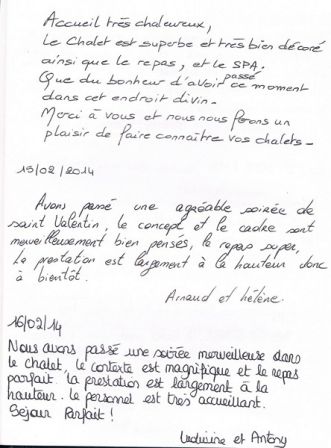 Accueil très chaleureux,
Le Chalet est superbe et très bien décoré
ainsi que le repas, et le SPA.
Que du bonheur d'avoir passé ce moment
dans cet endroit divin.
Merci à vous et nous nous ferons un
plaisir de faire connaître vos chalets-
15/02/2014
Avons passé une agréable soirée de
saint Valentin, le concept et le cadre sont
merveilleusement bien pensés, le repas super,
la prestation est largement à la hauteur donc
à bientôt.
Arnaud et hélène.
16/02/14
Nous avons passé une soirée merveilleuse dans
le chalet, le contexte est magnifique et le repas
parfait. la prestation est largement à la
hauteur. le personnel est très accueillant.
Sejour Parfait !
et Antony